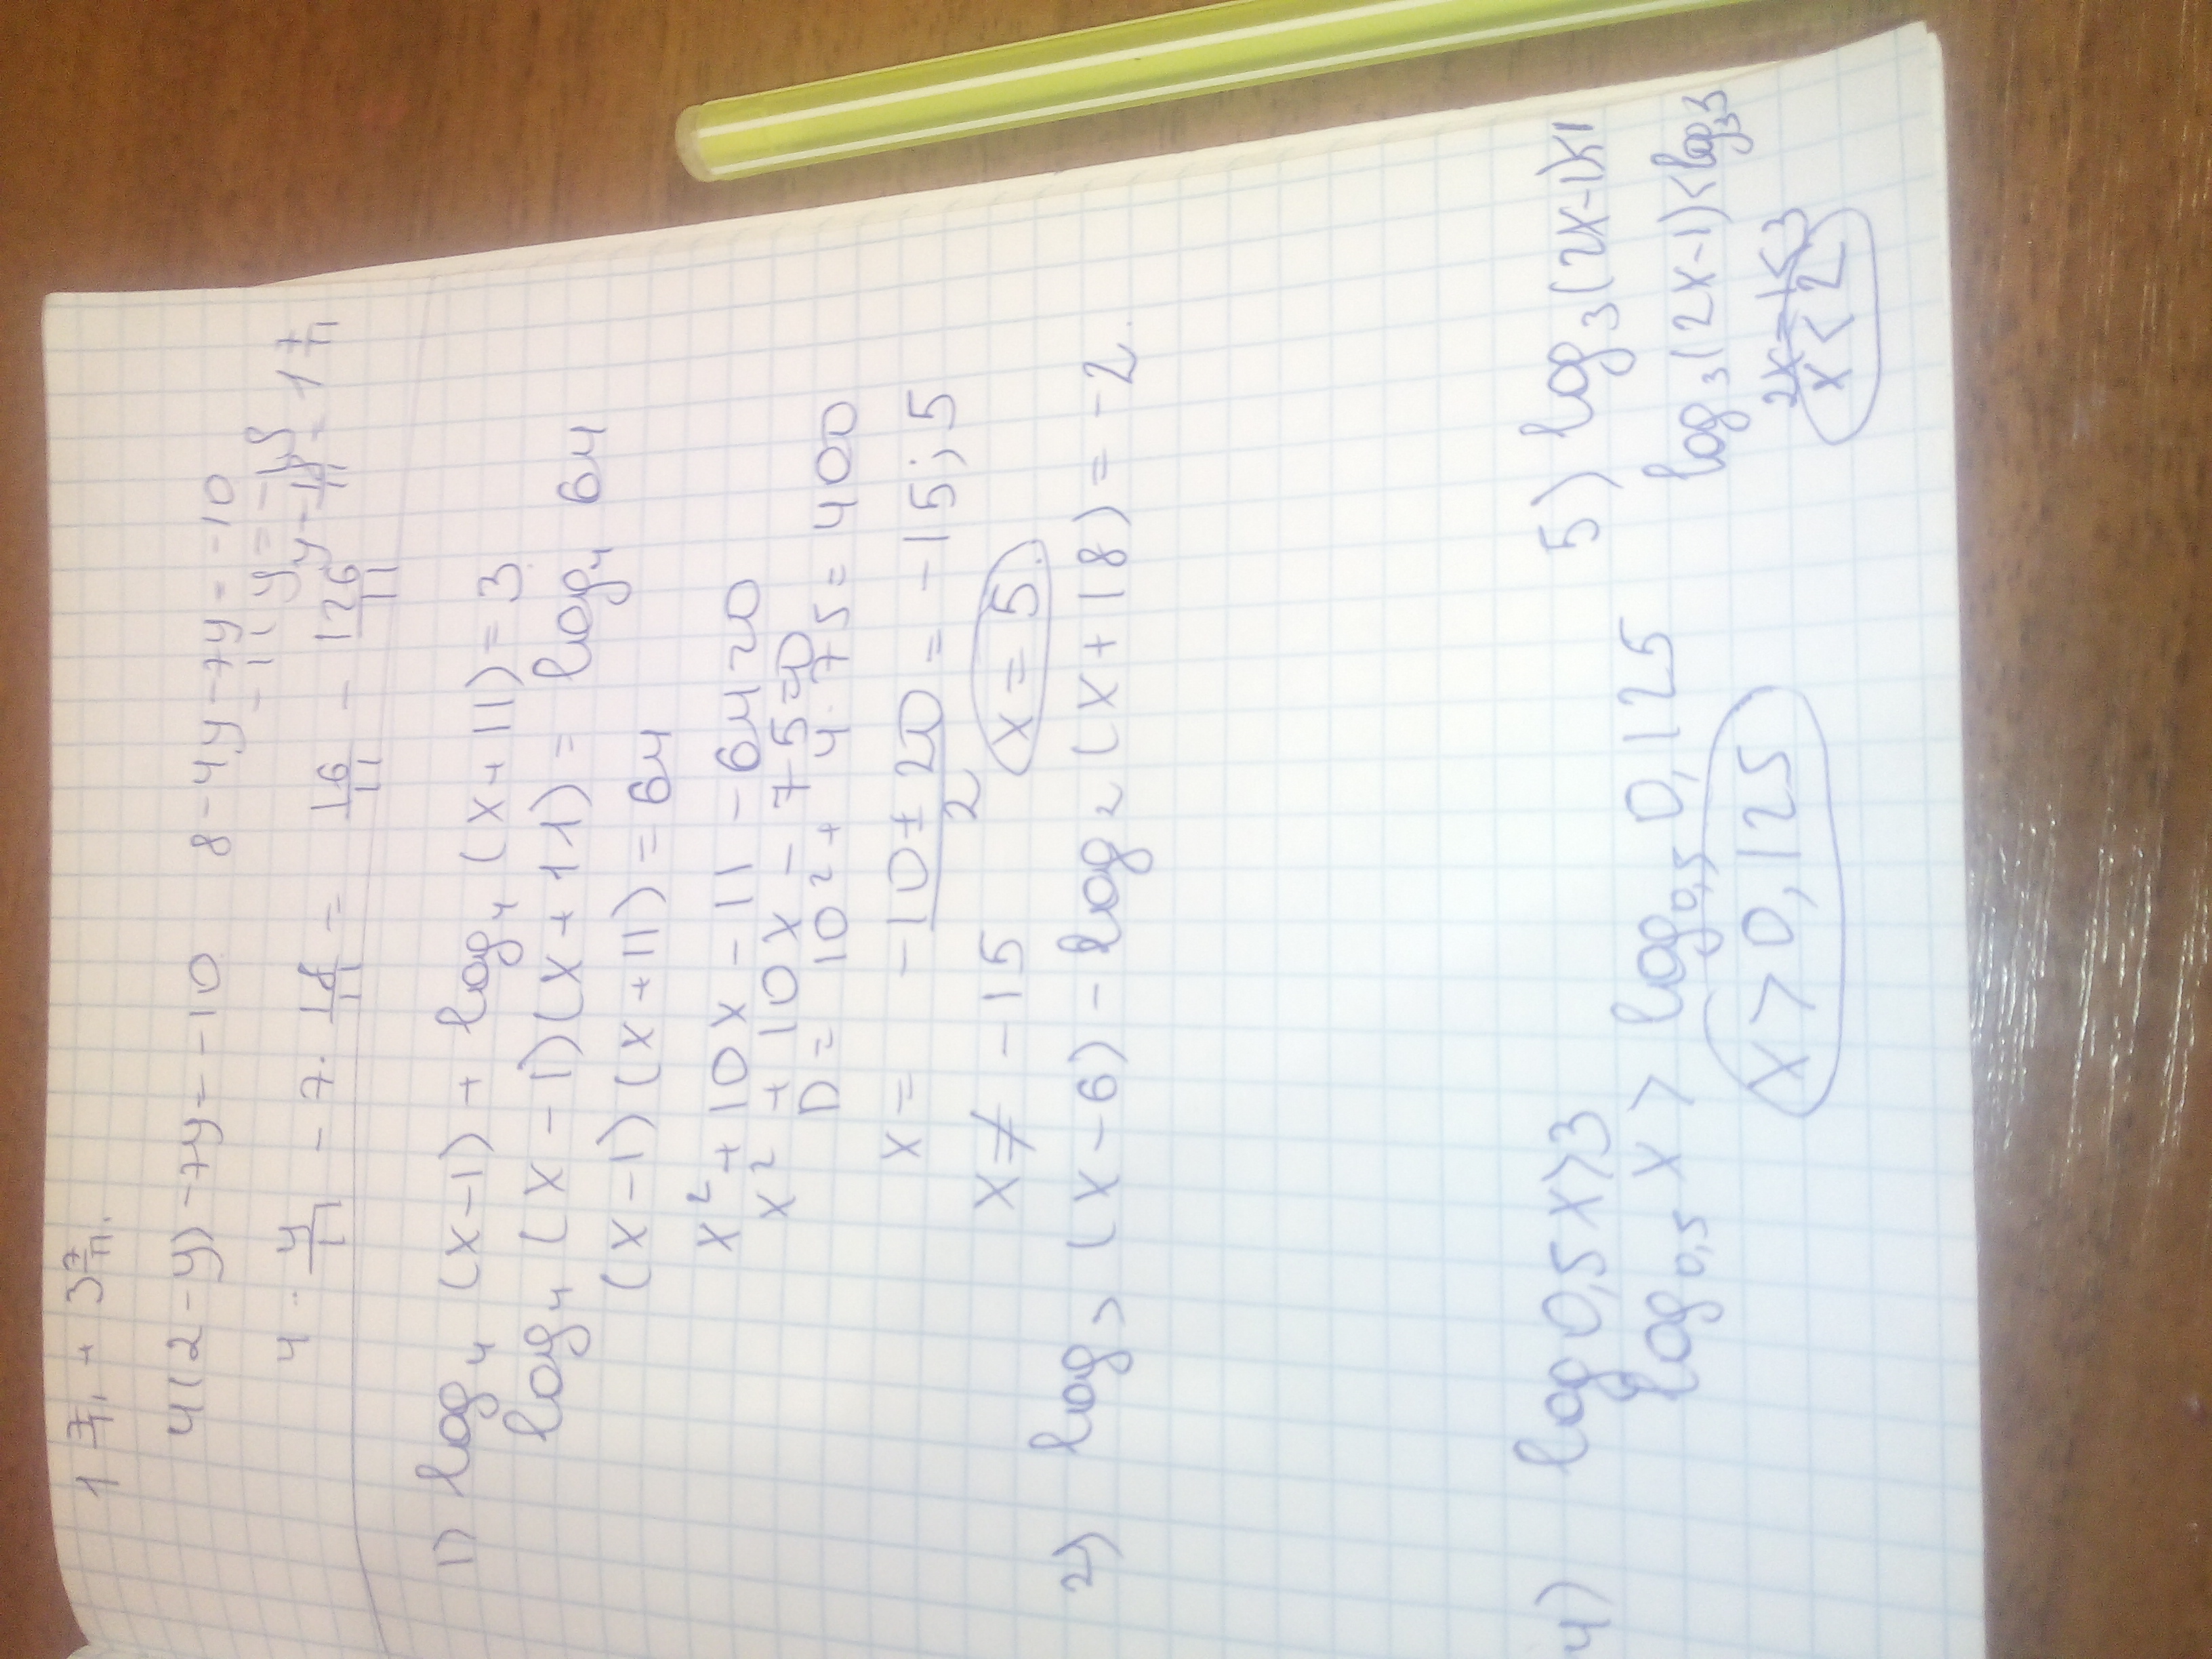 1 7/11 + 3 7/11.
4(2-y)-7y=-10 8-4y-7y=-10
-11y=-18
4· 4/11 -7· 18/11 = 16/11 - 126/11 y=18/11=1 7/11
1) log₄(x-1)+log₄(x+11)=3
log₄(x-1)(x+11)=log₄64
(x-1)(x+11)=64
x²+10x-11-64=0
x²+10x-75=0
D=10²+4·75=400
x= (-10±20)/2 = -15; 5
x≠-15 x=5.
2) log₃(x-6)-log₂(x+18)=-2.
4) log0,5x>3 5) log₃(2x-1)<1
log₀,₅x>log₀,₅0,125 log₃(2x-1)<log₃3
x>0,125 2x-1<3
x<2